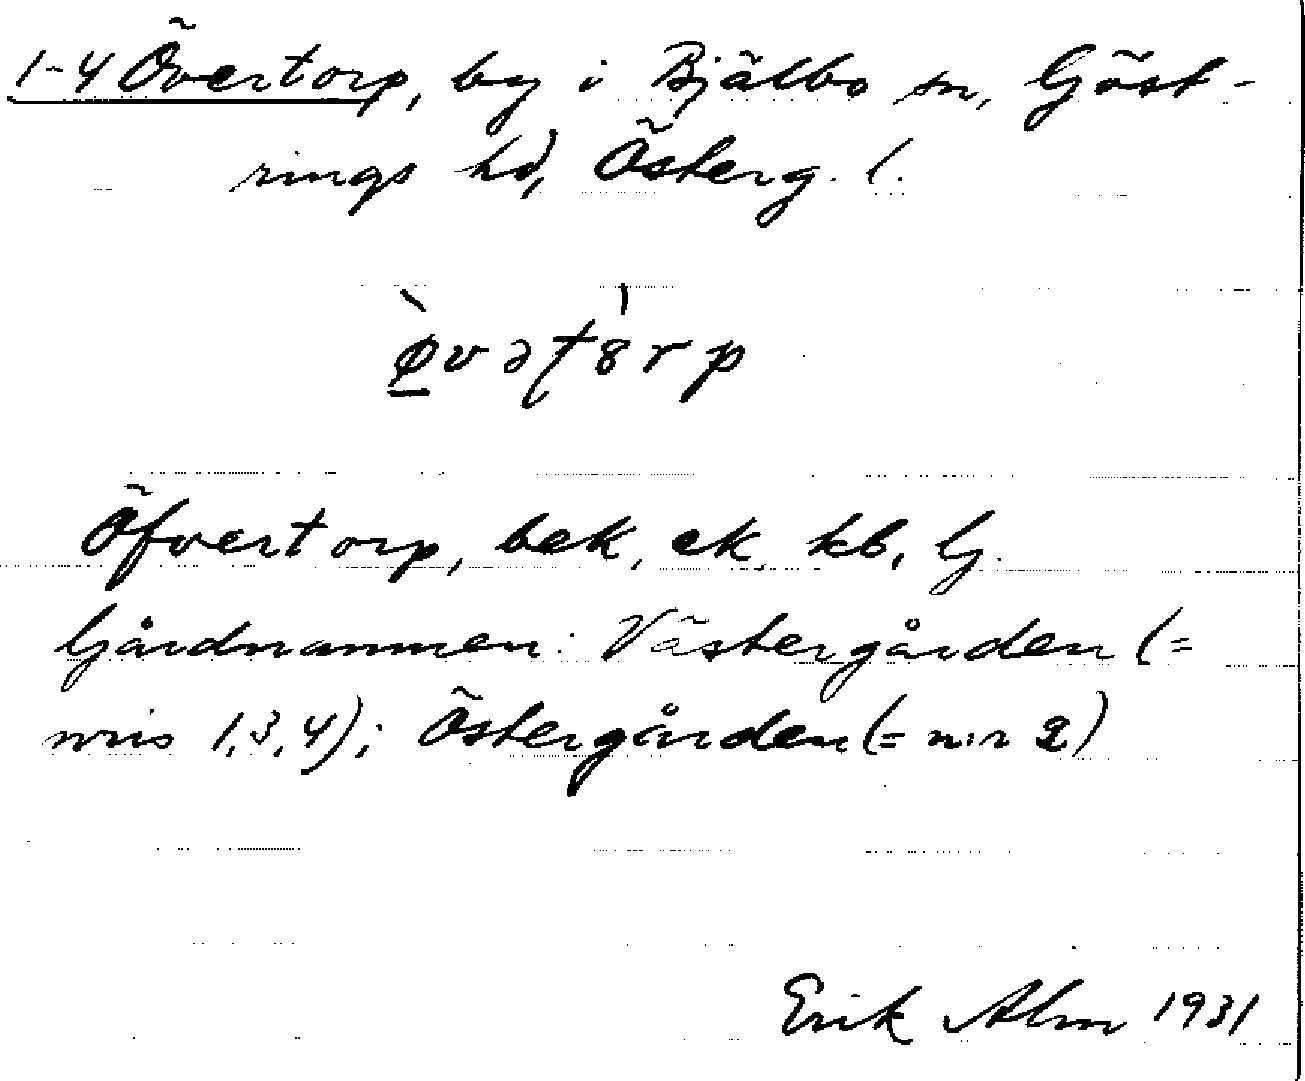 1-4 Övertorp, by i Bjälbo sn, Göst-
rings hd, Österg. l.
Öfvertorp, bek, ek, kb, Gj.
Gårdnamnen: Västergården (=
nris 1,3,4); Östergården (= n:r 2)
Erik Alm 1931